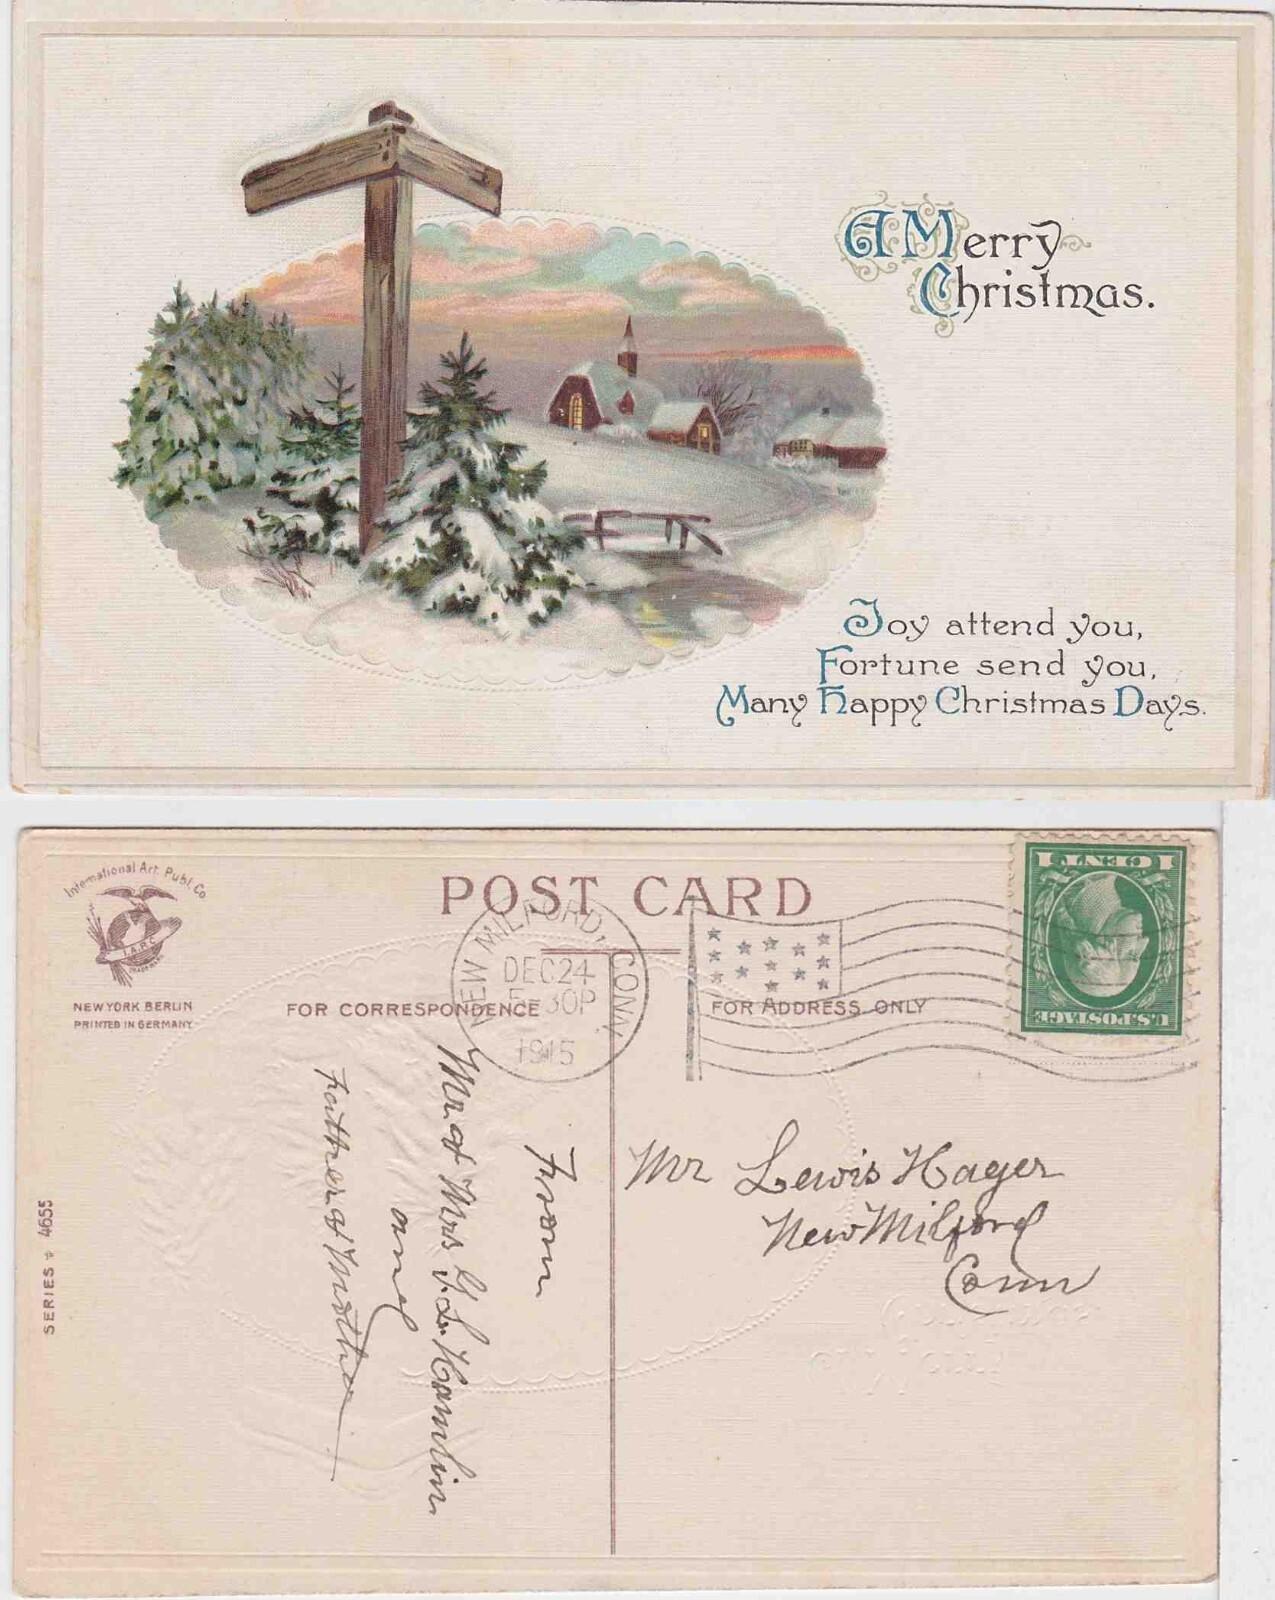 A Merry
Christmas.
Joy attend you,
Fortune send you,
Many Happy Christmas Days.
International Art Publ. Co
I.A.P.C.
TRADE MARK
NEW YORK BERLIN
PRINTED IN GERMANY
POST CARD
FOR CORRESPONDENCE
FOR ADDRESS ONLY
NEW MILFORD, CONN.
DEC 24
5-30P
1915
1 CENT 1
U.S. POSTAGE
From
Mr & Mrs G. L. Hamlin
and
Father & Mother
Mr Lewis Hager
New Milford
Conn
SERIES 4655